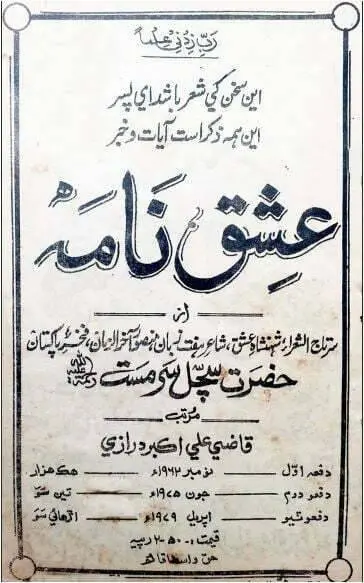 رَبِّ زِدْنِي عِلْمًا
اين سخن کي شعر باشد اي پسر
اين همه ذکر است آيات و خبر
عِشق نَامَہ
از
سرتاج الشعراء، شهنشاه عشق، شاعر هفت زبان، منصور آخر الزمان، فخر پاڪستان
حضرت سچل سرمست رحمة الله عليه
مرتب
قاضي علي اڪبر درازي
دفعو اول — نومبر ۱۹۶۲ع — هڪ هزار
دفعو دوم — جون ۱۹۷۵ع — ٽين سَو
دفعو ٽيو — اپريل ۱۹۷۹ع — اڙهائي سَو
قيمت: ۵۰-۲ رپيه